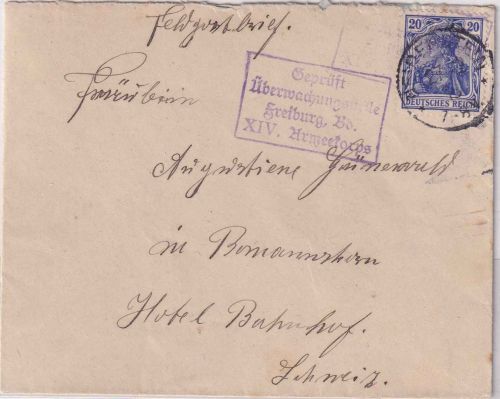 Feldpostbrief.
20 20
DEUTSCHES REICH
Geprüft
Überwachungsstelle
Freiburg, Bd.
XIV. Armeekorps
XIV.
Fräulein
Augustiene Grünewald
in Romannshorn
Hotel Bahnhof.
Schweiz.